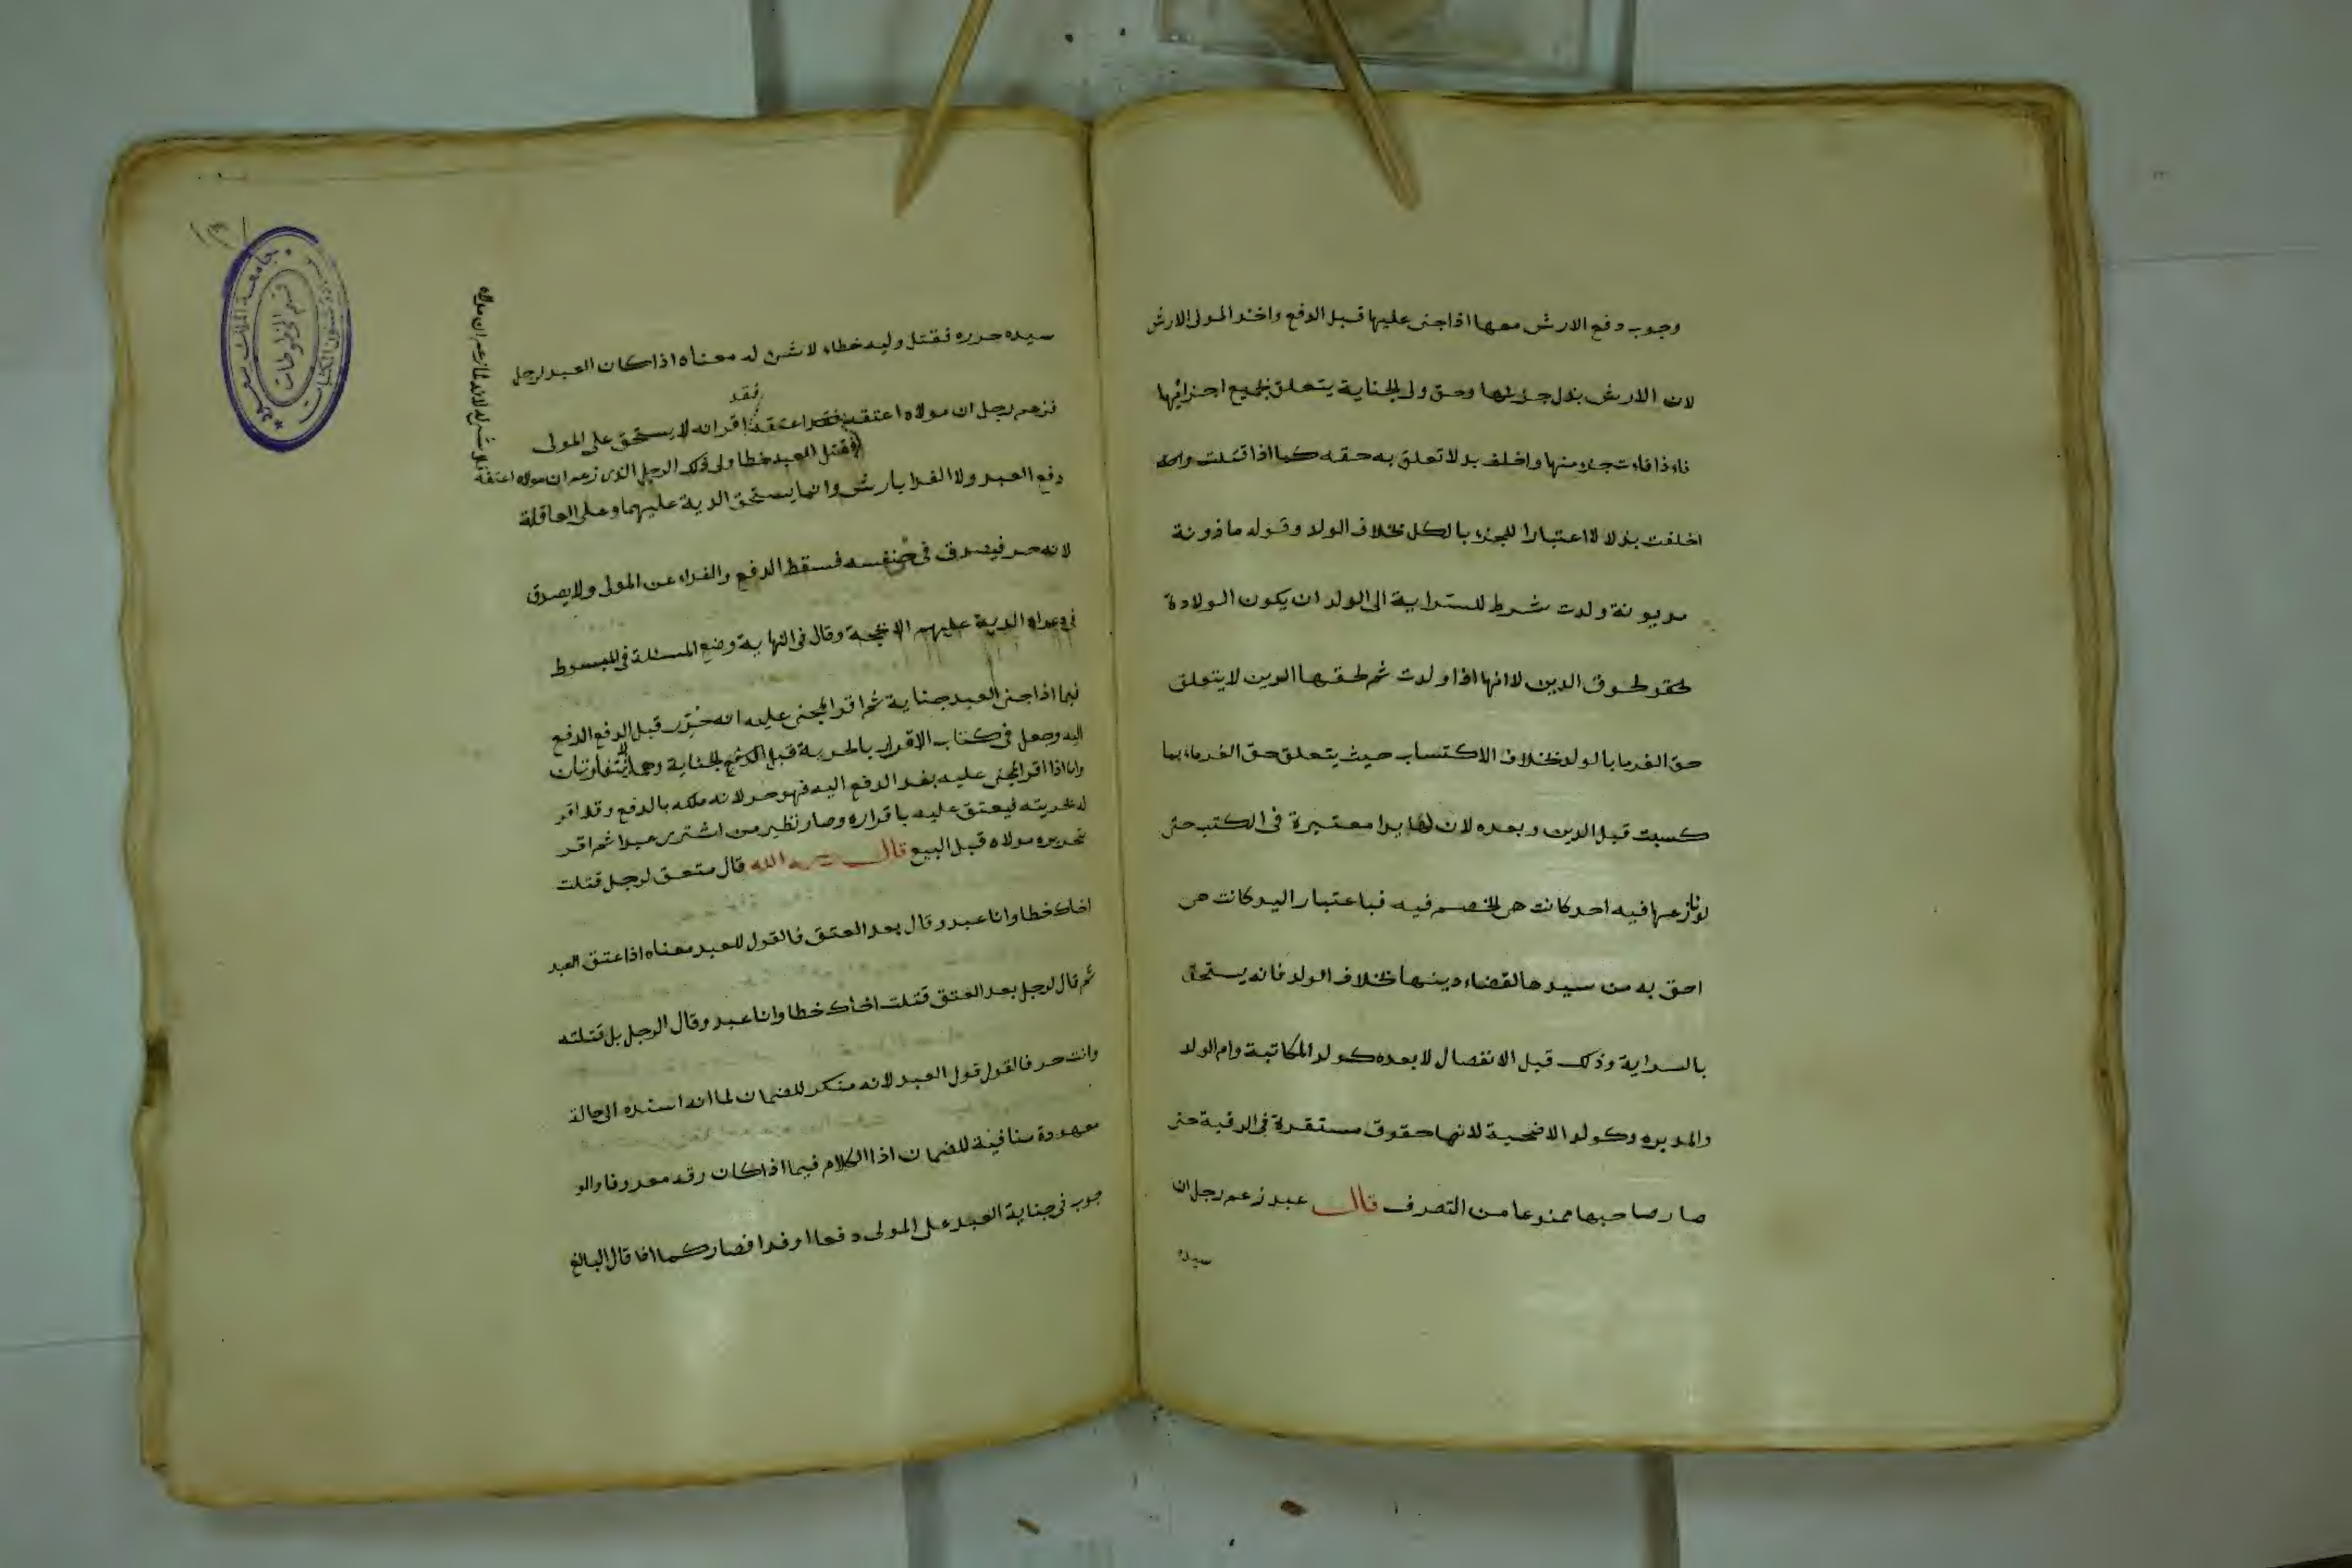 وجوب دفع الارش معها اذا جنى عليها قبل الدفع واخذ المولى الارش
لان الارش بدل جزئها وحق ولى الجناية يتعلق بجميع اجزائها
فاذا فات جزء منها واخلف بدلا تعلق به حقه كما اذا قتلت
اخلفت بدلا لا اعتبارا للجزء بالكل بخلاف الولد وقوله ماذونة
مديونة ولدت شرط للسراية الى الولد ان يكون الولادة
لحوق الدين لانها اذا ولدت ثم لحقها الدين لا يتعلق
حق الغرما بالولد بخلاف الاكتساب حيث يتعلق حق الغرماء بما
كسبت قبل الدين وبعده لان لها يدا معتبرة فى الكتب حتى
لو نازعها فيه احد كانت هى الخصم فيه فباعتبار اليد كانت هى
احق به من سيدها لقضاء دينها بخلاف الولد فانه يستحق
بالسراية وذلك قبل الانفصال لا بعده كولد المكاتبة وام الولد
والمدبره وكولد الاضحية لانها حقوق مستقرة فى الرقبة حتى
صار صاحبها ممنوعا من التصرف قال عبد زعم رجل ان
سيده
١٣١
جامعة الملك سعود
قسم المخطوطات
سيده حرره فقتل وليه خطاء لا شئ له معناه اذا كان العبد لرجل
فقد
فزعم رجل ان مولاه اعتقه اقر انه لا يستحق على المولى
فقتل العبد خطا ولى ذلك الرجل الذى زعم ان مولاه اعتقه
لانه لما زعم ان مولاه
دفع العبد ولا الفدا بارش وانما يستحق الدية عليهما وعلى العاقلة
لانه حر فيصدق فى نفسه فسقط الدفع والفداء عن المولى ولا يصدق
فى دعواه الدية عليهم الا بحجة وقال فى النهاية وضع المسئلة فى المبسوط
فيما اذا جنى العبد جناية ثم اقر المجنى عليه انه حر قبل الدفع
اليه وجعل فى كتاب الاقرار بالحرية قبل الدفع الجناية وهما متفاوتان
واما اذا اقر المجنى عليه بعد الدفع اليه فهو حر لانه ملكه بالدفع وقد اقر
له بحريته فيعتق عليه باقراره وصار نظير من اشترى عبدا ثم اقر
بتحرير مولاه قبل البيع قال رحمه الله قال معتق لرجل قتلت
اخاك خطا وانا عبد وقال بعد العتق فالقول للعبد معناه اذا عتق العبد
ثم قال لرجل بعد العتق قتلت اخاك خطا وانا عبد وقال الرجل بل قتلته
وانت حر فالقول قول العبد لانه منكر للضمان لما انه اسنده الى حالة
معهودة منافية للضمان اذ الكلام فيما اذا كان رقه معروفا والو
جوب فى جناية العبد على المولى دفعا او فدا فصار كما اذا قال البالغ